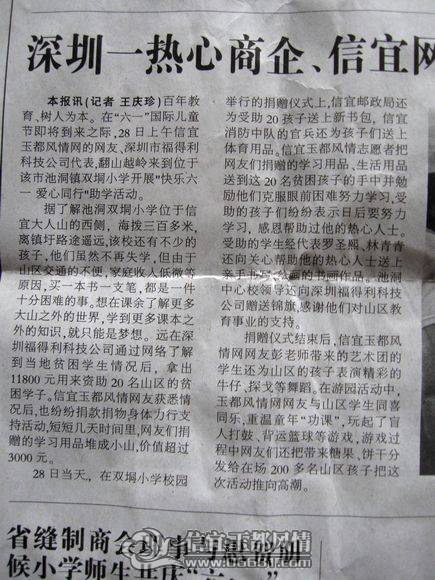 深圳一热心商企、信宜网
本报讯(记者 王庆珍)百年教
育、树人为本。在“六一”国际儿童
节即将到来之际,28日上午信宜
玉都风情网的网友、深圳市福得利
科技公司代表,翻山越岭来到位于
该市池洞镇双垌小学开展“快乐六
一 爱心同行”助学活动。
据了解池洞双垌小学位于信
宜大人山的西侧，海拨三百多米,
离镇圩路途遥远,该校还有不少的
孩子,他们虽然不再失学,但由于
山区交通的不便,家庭收入低微等
原因,买一本书一支笔,都是一件
十分困难的事。想在课余了解更多
大山之外的世界,学到更多课本之
外的知识,就只能是梦想。远在深
圳福得利科技公司通过网络了解
到当地贫困学生情况后，拿出
11800元用来资助20名山区的贫
困学子。信宜玉都风情网友获悉情
况后,也纷纷捐款捐物身体力行支
持活动,短短几天时间里,网友们捐
赠的学习用品堆成小山,价值超过
3000元。
28日当天，在双垌小学校园
举行的捐赠仪式上,信宜邮政局还
为受助20孩子送上新书包，信宜
消防中队的官兵还为孩子们送上
体育用品。信宜玉都风情志愿者把
网友们捐赠的学习用品、生活用品
送到这20名贫困孩子的手中并勉
励他们克服眼前困难努力学习,受
助的孩子们纷纷表示日后要努力
学习，感恩帮助过他的热心人士。
受助的学生经代表罗圣熙、林青青
还向关心帮助他的热心人士送上
亲手书写绘画的书画作品。池洞
中心校领导还向深圳福得利科技
公司赠送锦旗,感谢他们对山区教
育事业的支持。
捐赠仪式结束后,信宜玉都风
情网网友彭老师带来的艺术团的
学生还为山区的孩子表演精彩的
牛仔、探戈等舞蹈。在游园活动中,
玉都风情网网友与山区学生同喜
同乐、重温童年“功课”,玩起了盲
人打鼓、背运篮球等游戏，游戏过
程中网友们还把带来糖果、饼干分
发给在场200多名山区孩子把这
次活动推向高潮。
省缝制商会理事与慰放朋
信宜玉都风情